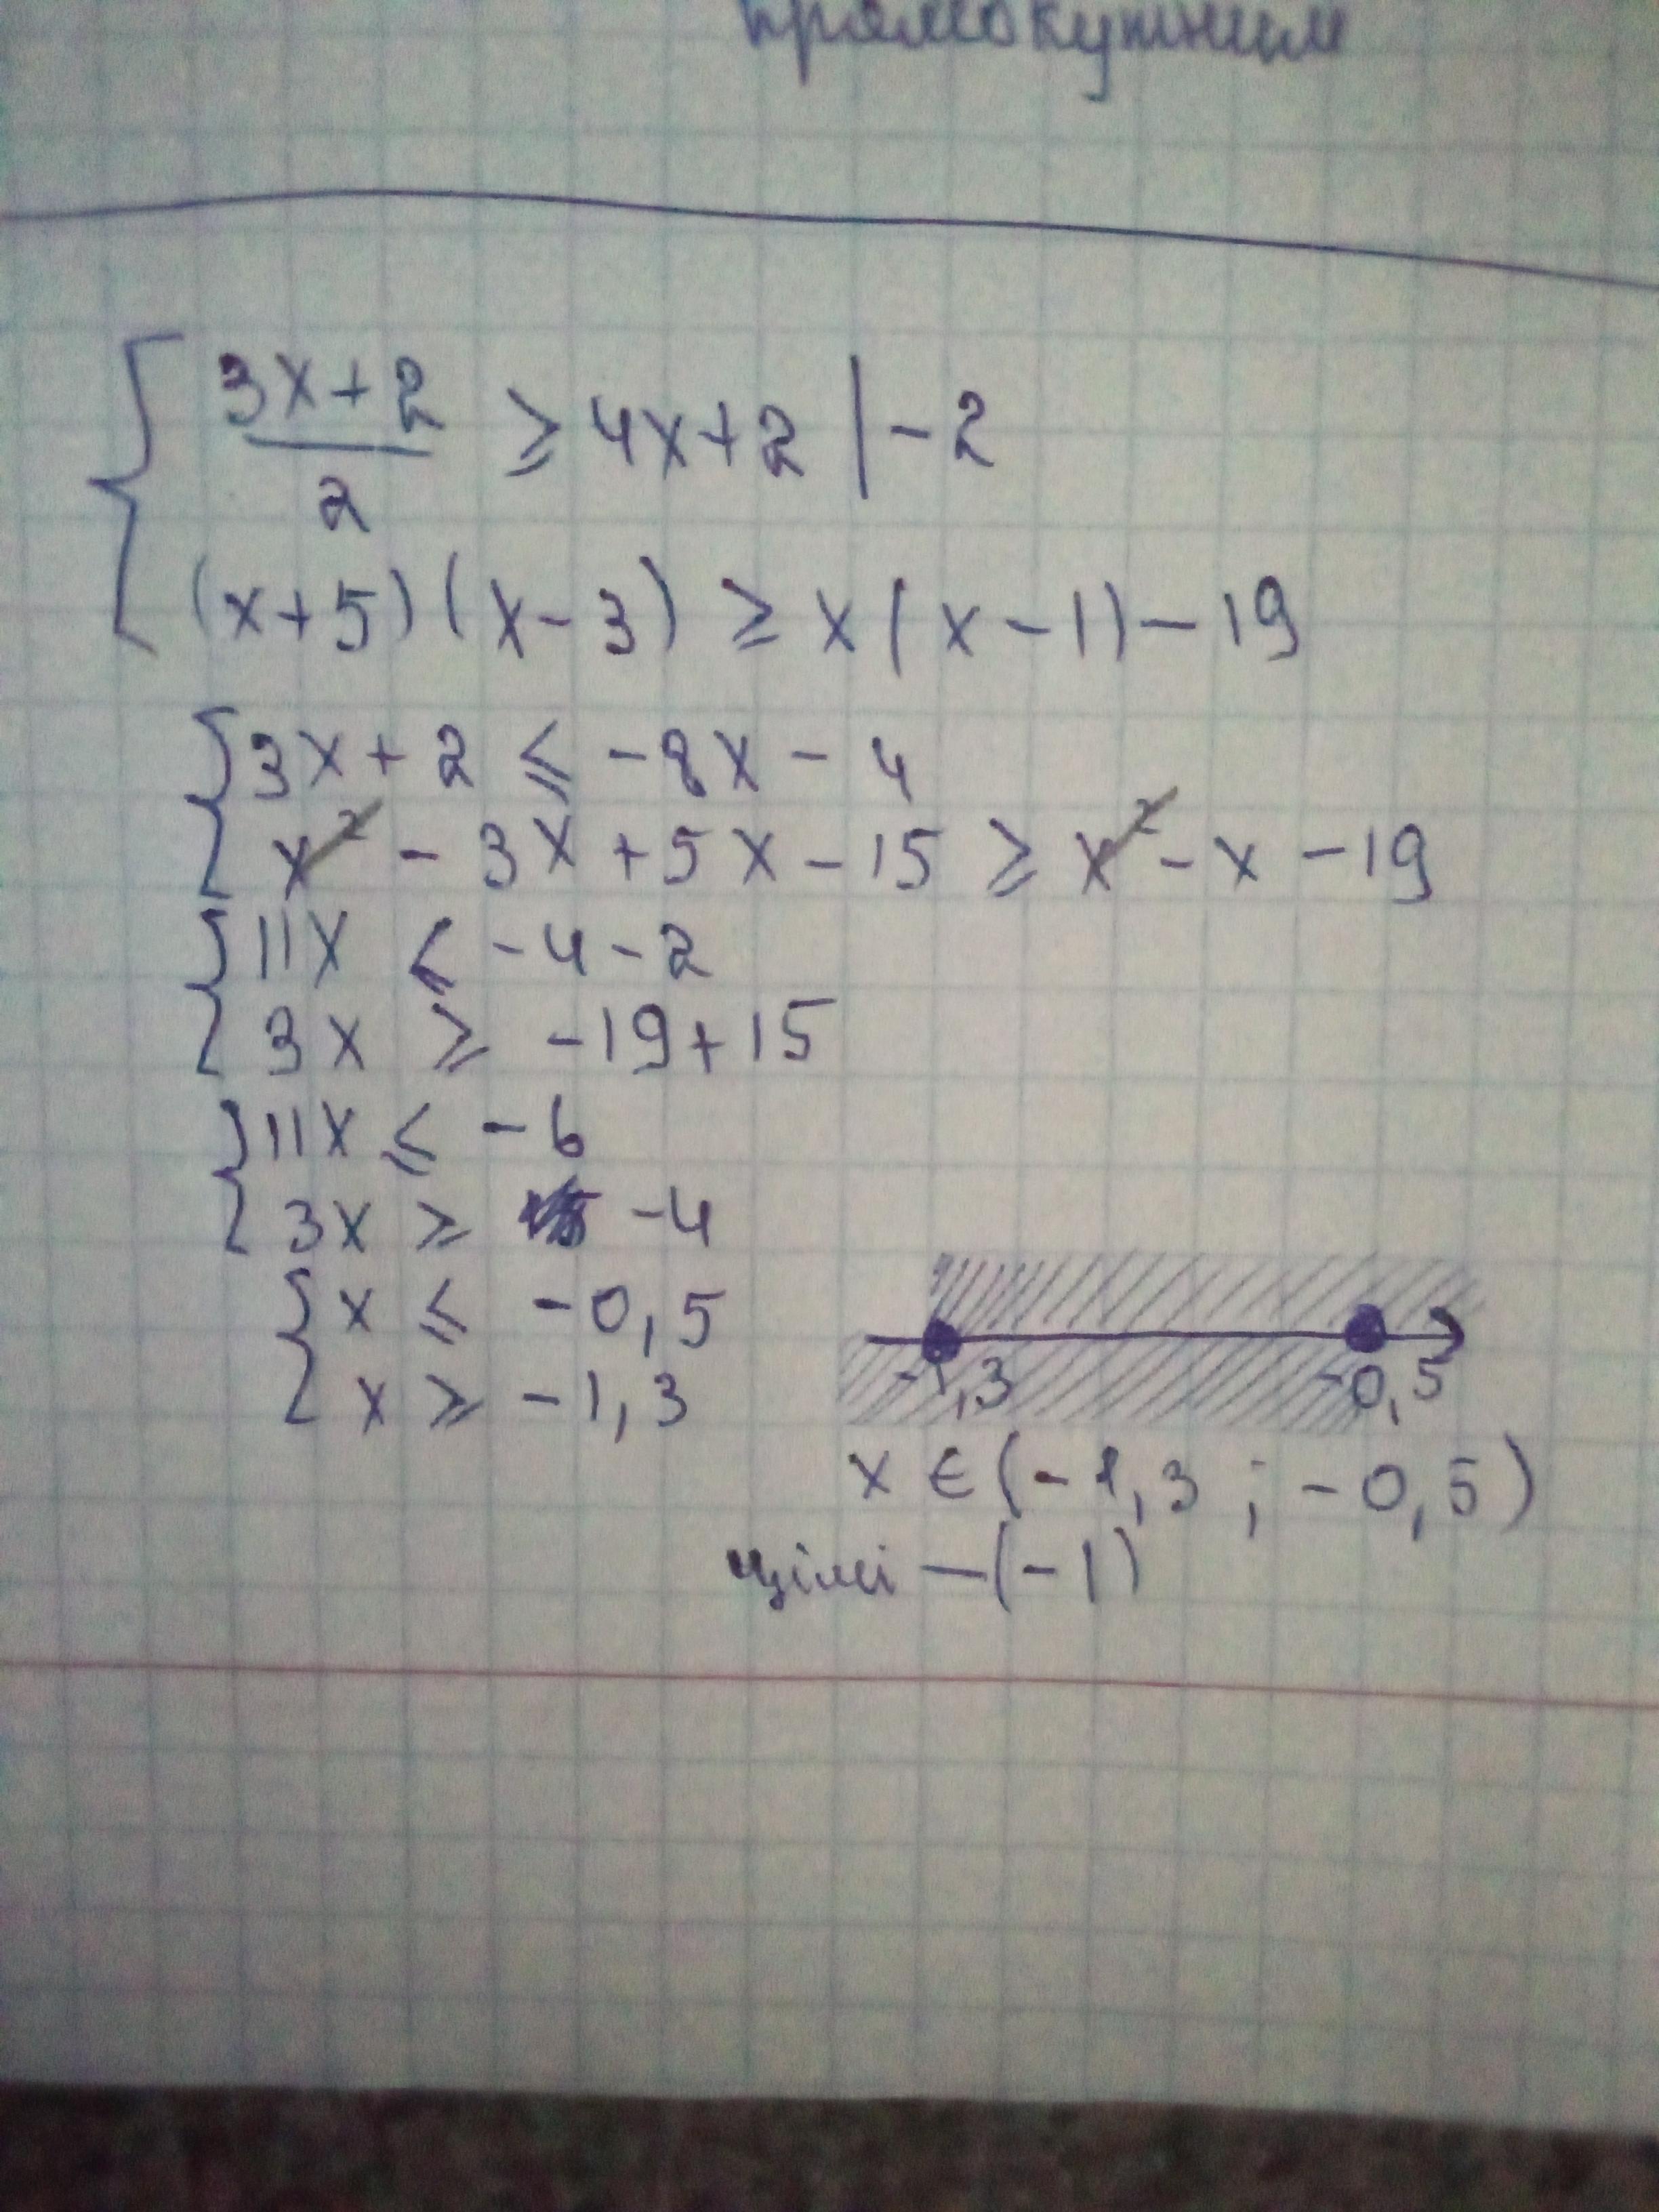 прямокутним
{ (3x+2)/2 ≥ 4x+2 | -2
(x+5)(x-3) ≥ x(x-1)-19
{ 3x+2 ≤ -8x-4
x² - 3x + 5x - 15 ≥ x² - x - 19
{ 11x ≤ -4-2
3x ≥ -19+15
{ 11x ≤ -6
3x ≥ -4
{ x ≤ -0,5
x ≥ -1,3
-1,3 -0,5
x ∈ (-1,3 ; -0,5)
цілі — (-1)